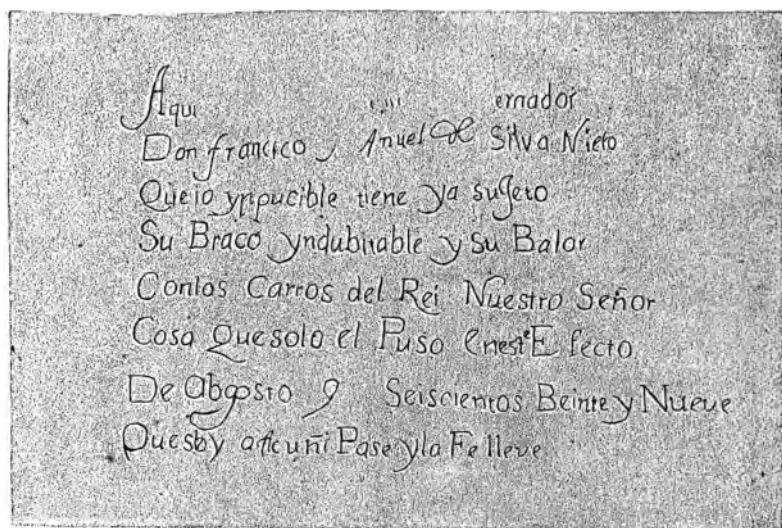 Aqui ernador
Don francico Anuel de Silva Nieto
Queio ynpucible tiene ya sugeto
Su Braco yndubitable y Su Balor
Conlos Carros del Rei Nuestro Señor
Cosa Quesolo el Puso EnesteE fecto
De Abgosto 9 Seiscientos Beinte y Nueve
Quesby a Cuñi Pase yla Fe lleve